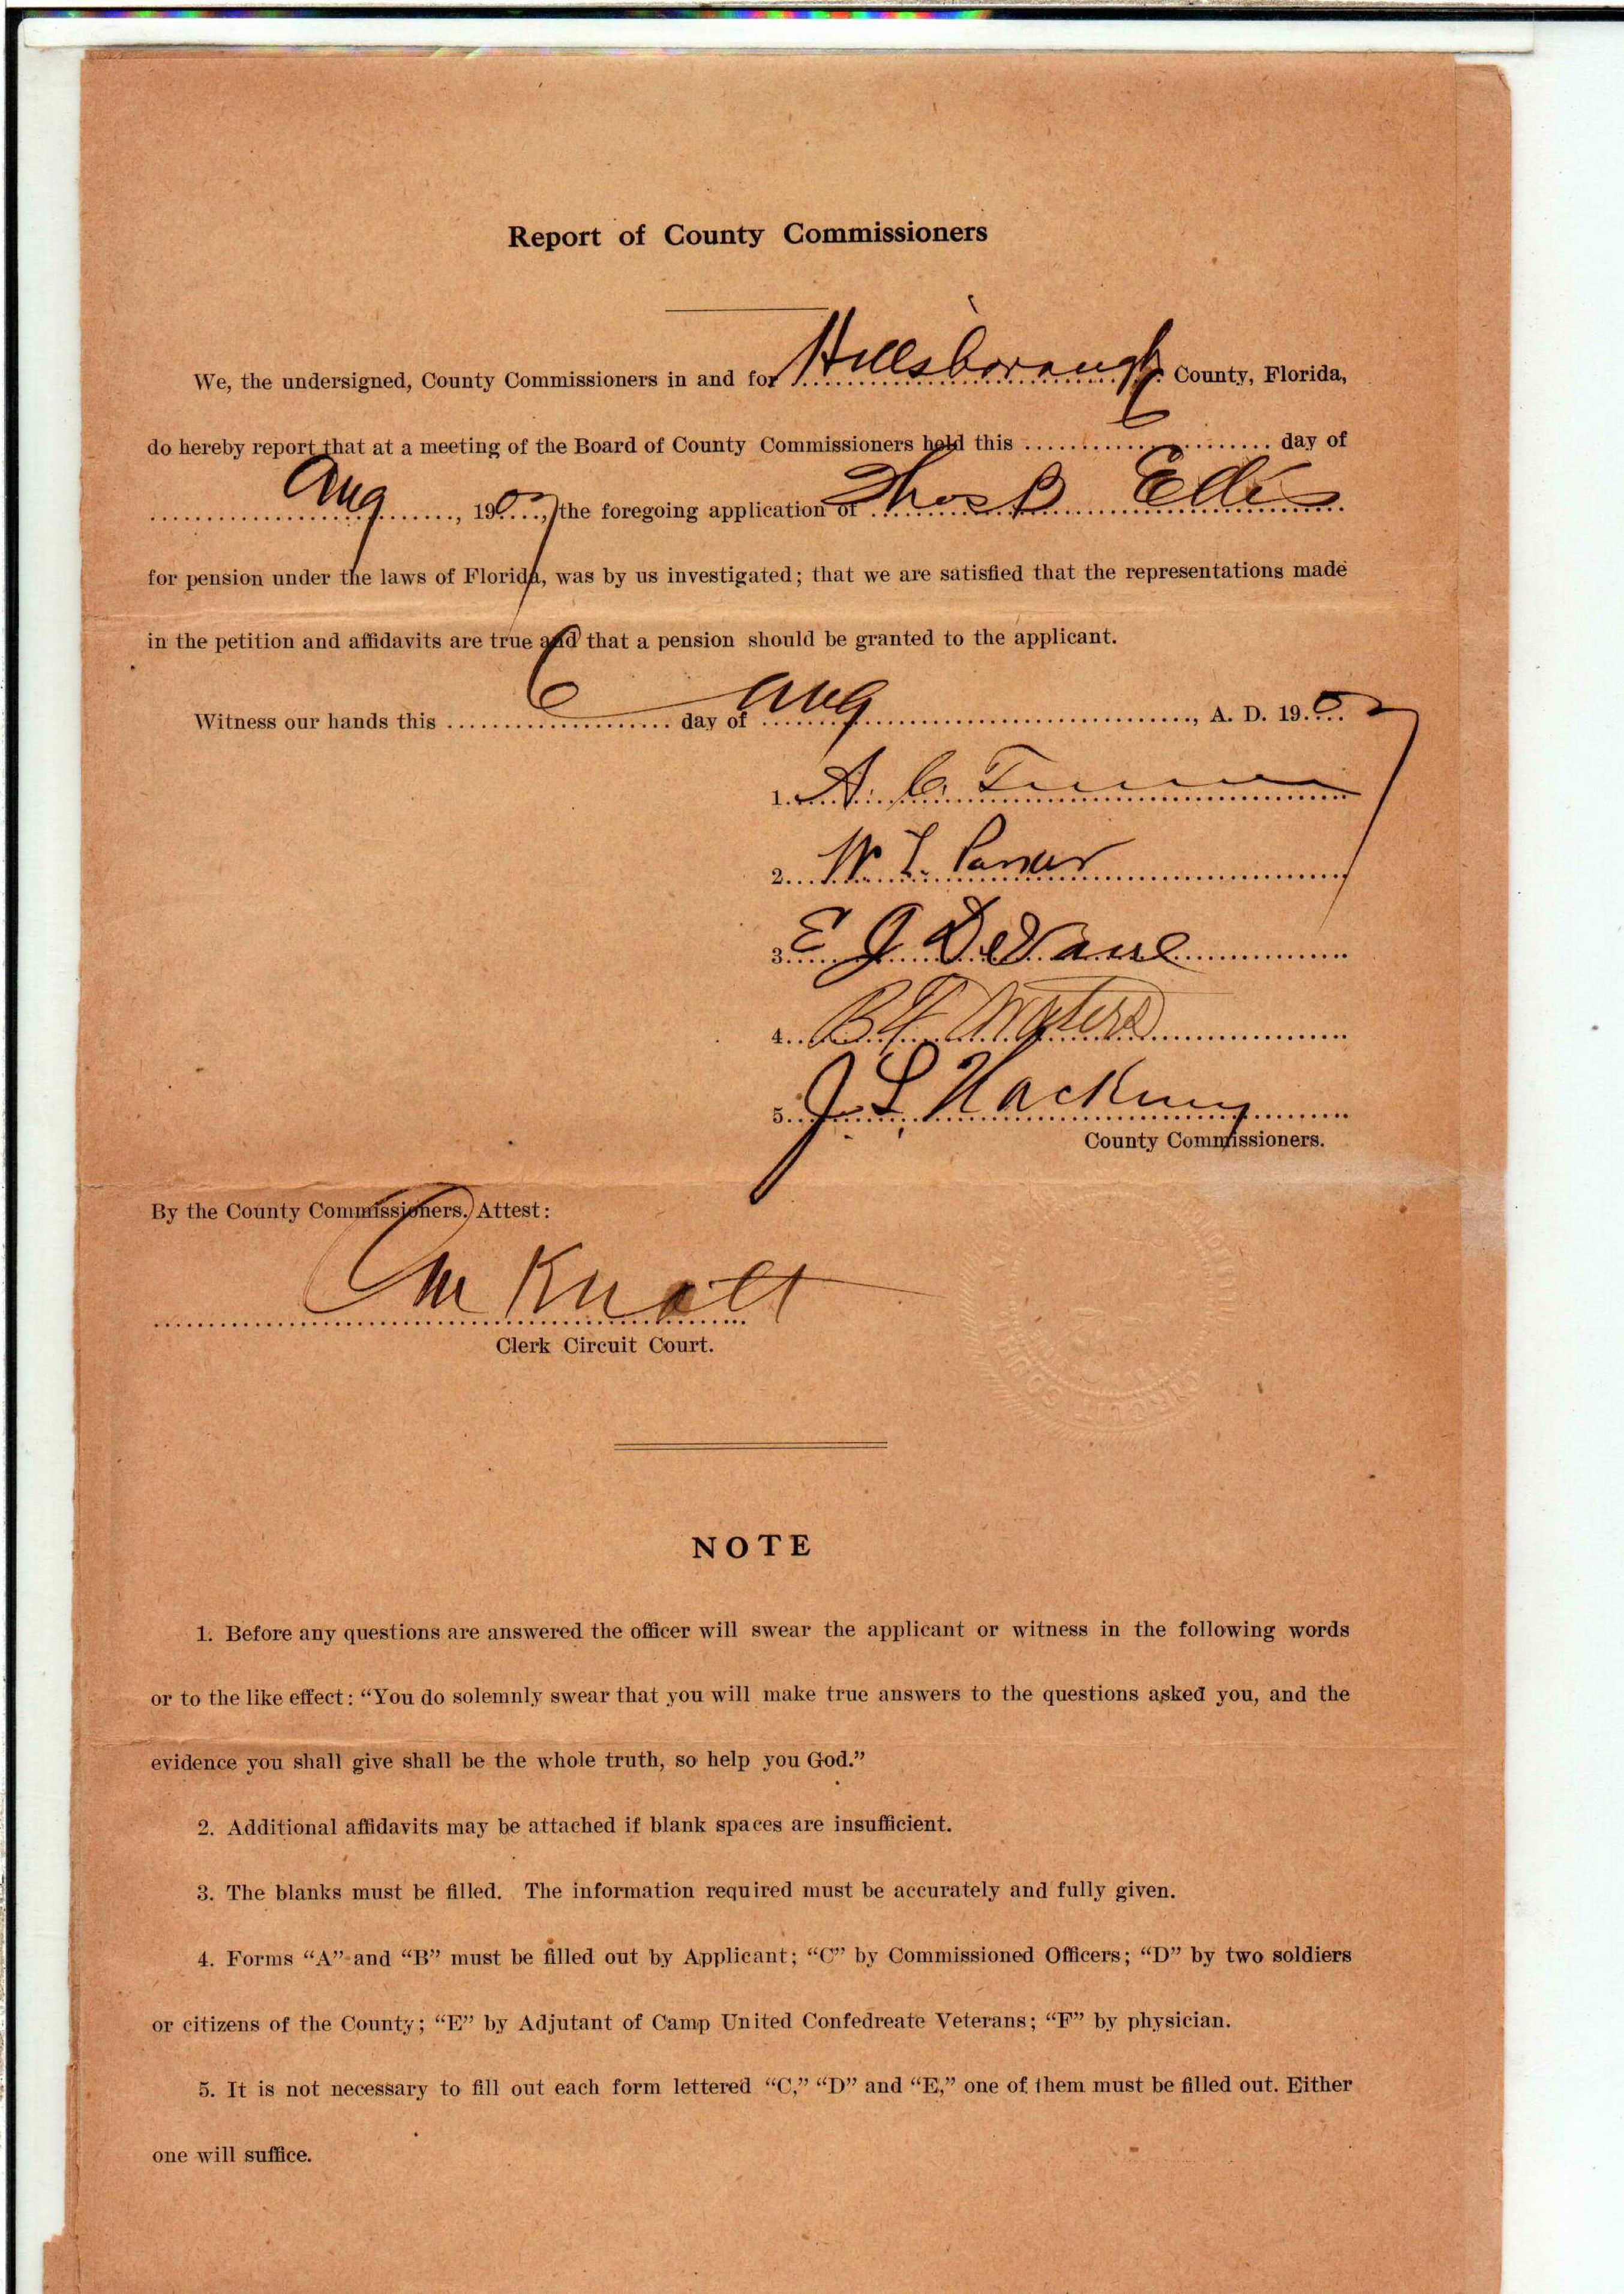 Report of County Commissioners
We, the undersigned, County Commissioners in and for Hillsborough County, Florida,
do hereby report that at a meeting of the Board of County Commissioners held this 6 day of
Aug, 1907, the foregoing application of Thos B Ellis
for pension under the laws of Florida, was by us investigated; that we are satisfied that the representations made
in the petition and affidavits are true and that a pension should be granted to the applicant.
Witness our hands this 6 day of Aug, A. D. 1907
1. A. C.
2. W. T.
3. E J DeVane
4. B F Waters
5. J L Hackney
County Commissioners.
By the County Commissioners. Attest:
Knott
Clerk Circuit Court.
CIRCUIT COURT
NOTE
1. Before any questions are answered the officer will swear the applicant or witness in the following words
or to the like effect: “You do solemnly swear that you will make true answers to the questions asked you, and the
evidence you shall give shall be the whole truth, so help you God.”
2. Additional affidavits may be attached if blank spaces are insufficient.
3. The blanks must be filled. The information required must be accurately and fully given.
4. Forms “A” and “B” must be filled out by Applicant; “C” by Commissioned Officers; “D” by two soldiers
or citizens of the County; “E” by Adjutant of Camp United Confedreate Veterans; “F” by physician.
5. It is not necessary to fill out each form lettered “C,” “D” and “E,” one of them must be filled out. Either
one will suffice.